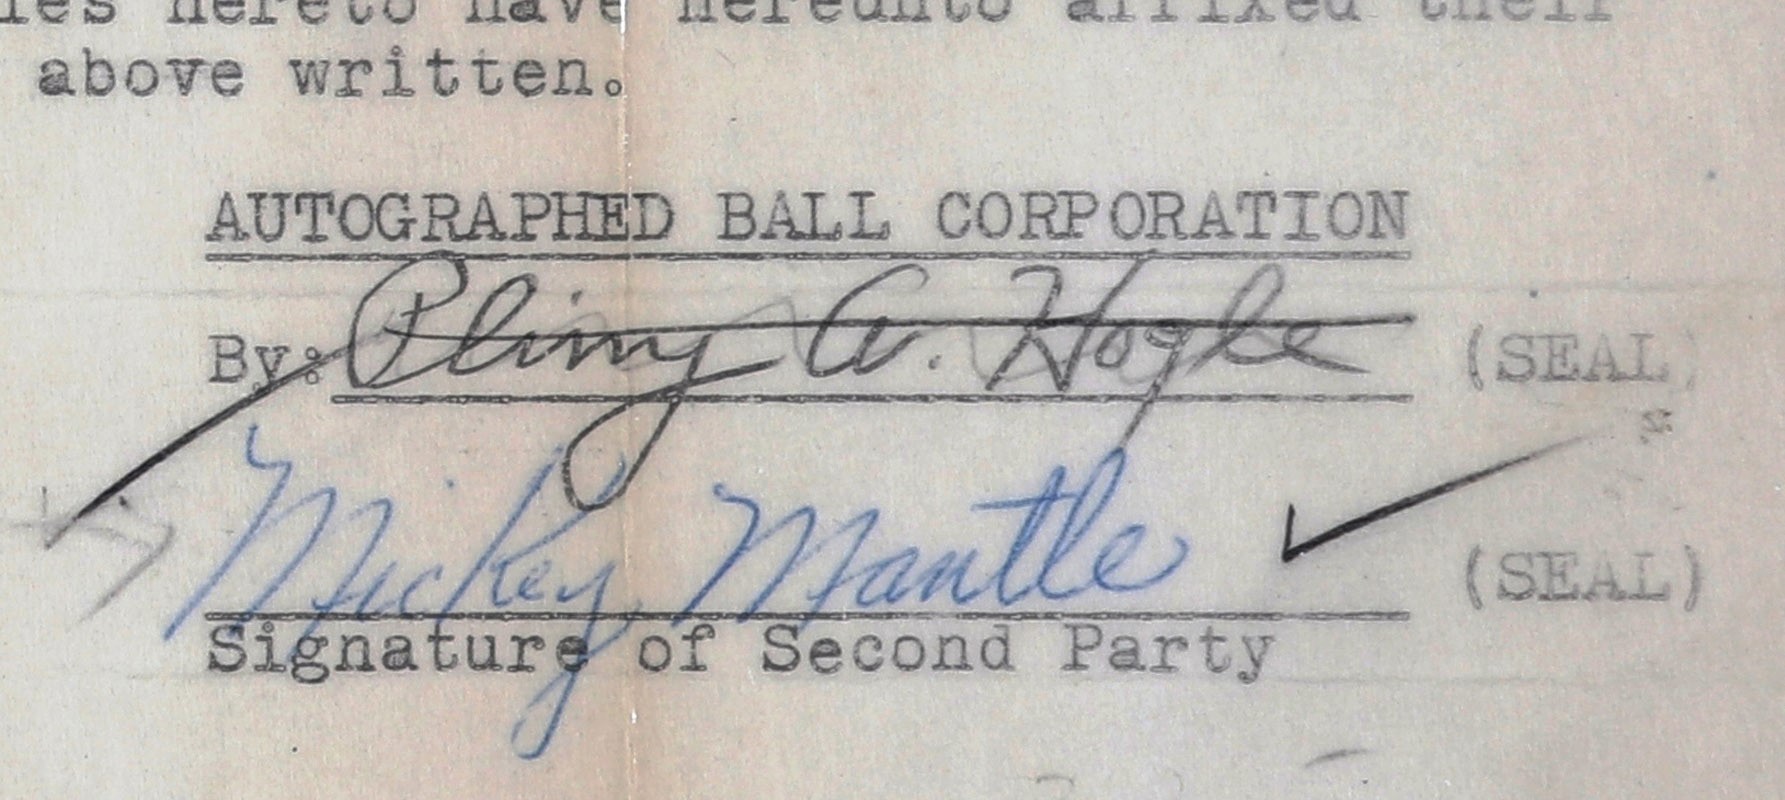 hereto have hereunto affixed their
above written.
AUTOGRAPHED BALL CORPORATION
By: Pliny A. Hogle (SEAL)
Mickey Mantle (SEAL)
Signature of Second Party